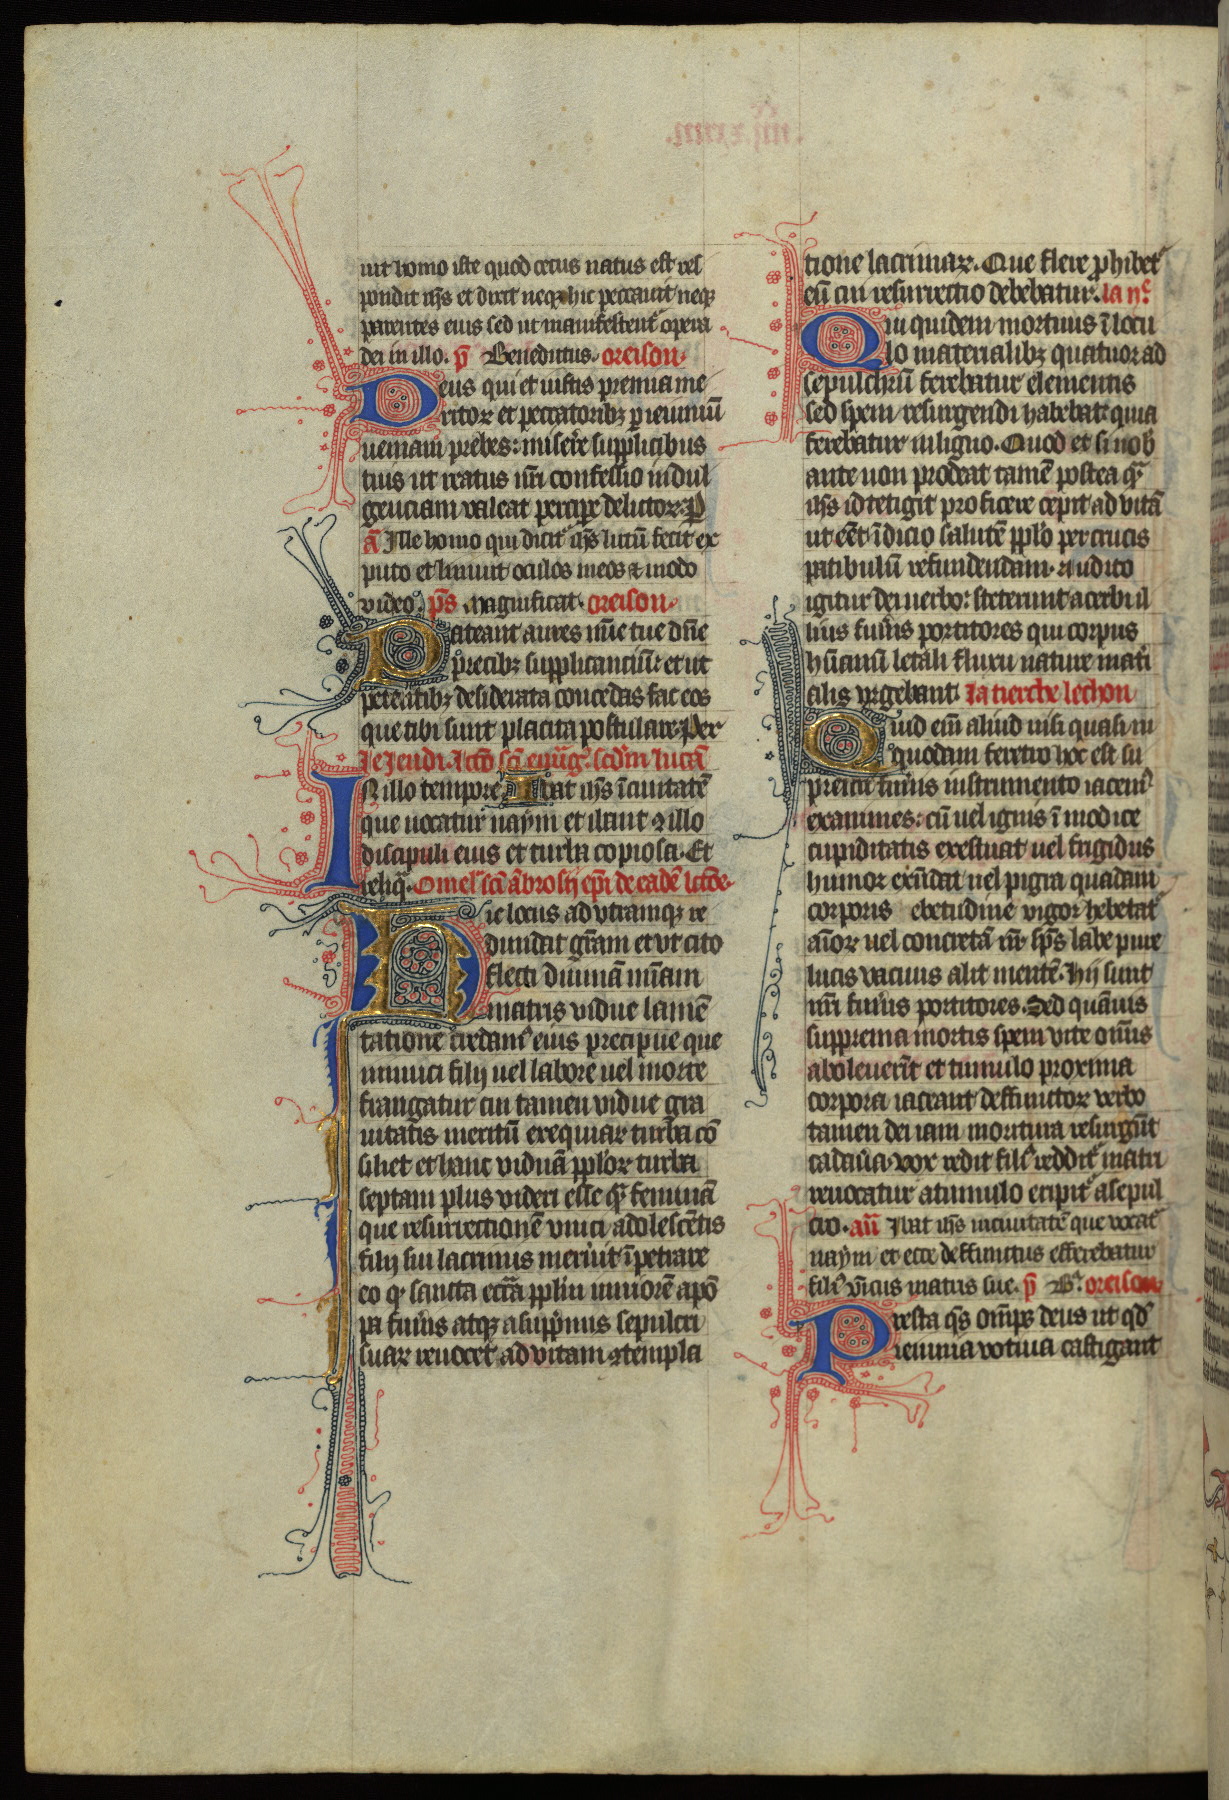 uit homo iste quod cecus natus est res
pondit ihs et dixit neqꝫ hic peccauit neqꝫ
parentes eius sed ut manifestent᷑ opera
dei in illo. p̄ Benedictus. oreison.
Deus qui et iustis premia me
ritoꝝ et peccatoribꝫ ꝑ ieiuniū
ueniam prebes: misere supplicibus
tuis ut reatus nr̄i confessio indul
genciam ualeat percipe delictoꝝ. P
ā Ille homo qui dicit᷑ ihs lutū fecit ex
puto et liniuit oculos meos ⁊ modo
video. p̄s Magnificat. oreison.
Pateant aures mīe tue dn̄e
precibꝫ supplicanciū: et ut
petentibꝫ desiderata concedas fac eos
que tibi sunt placita postulare. Per
Le Jeudi. Lcō sc̄i euūg᷑. scdm lucā
In illo tempore Ibat ihs ī ciuitatē
que uocatur naym et ibant ⁊ illo
discipuli eius et turba copiosa. Et
reliq̄. Omel᷑ sc̄i ābrosij ep̄i de eadē lcōe.
Hic locus ad utramqꝫ re
dundat gr̄am et ut cito
flecti diuinā mīam
matris vidue lamē
tatione credam᷑ eius precipue que
unnici filij uel labore uel morte
frangatur cui tamen vidue gra
uitatis meritū exequiaꝝ turba cō
siliet et hanc viduā pploꝝ turba
septam plus videri esse qͣ feminā
que resurrectionē vnici adolescētis
filij sui lacrimis meruit īpetrare
eo q̄ sancta ecctā pplm iuniorē apō
pa funis atqꝫ a suppͥmis sepulcri
suaꝝ reuocet ad vitam ⁊templa
tione lacrimaꝝ. Que flere phibet᷑
eū cui resurrectio debebatur. la iiͤ.
Qui quidem mortuus ī locu
lo materialibꝫ quatuor ad
sepulchrū ferebatur elementis
sed spem resurgendi habebat quia
ferebatur in ligno. Quod et si nob̄
ante non proderat tamē postea qͣ
ihs id tetigit proficere cepit ad vitā
ut eēt īdicio salutē pplo per crucis
patibulū refundendam. Audito
igitur dei uerbo: steterunt acerbi il
lius funis portitores qui corpus
hūanū letali fluxu nature mati
alis vrgebant. la tierche lechon
Quid eīm aliud nisi quasi in
quodam feretro hoc est su
premi funis instrumento iacem᷑
examines: cū uel ignis ī modice
cupiditatis exestuat uel frigidus
humor exūdat uel pigra quadam
corporis ebetudine vigor hebetat᷑
aīoꝝ uel concretā nr̄ sp̄s labe pure
lucis vacuus alit mentē. Hij sunt
nr̄i funis portitores. Sed quāuis
suprema mortis spem vite om̄is
aboleuerīt et tumulo proxima
corpora iaceant deffunctoꝝ verbo
tamen dei iam moritura resurgūt
cadaūa. vox redit fili᷑ reddit᷑ matri
reuocatur a tumulo eripit᷑ a sepul
cro. an̄ Ibat ihs in ciuitatē que vocat᷑
naym et ecce deffunctus efferebatur
fili᷑ vnicus matris sue. p̄ B᷑. oreison
Presta q̄s om̄ps deus ut qd̄
ieiunia votiua castigant